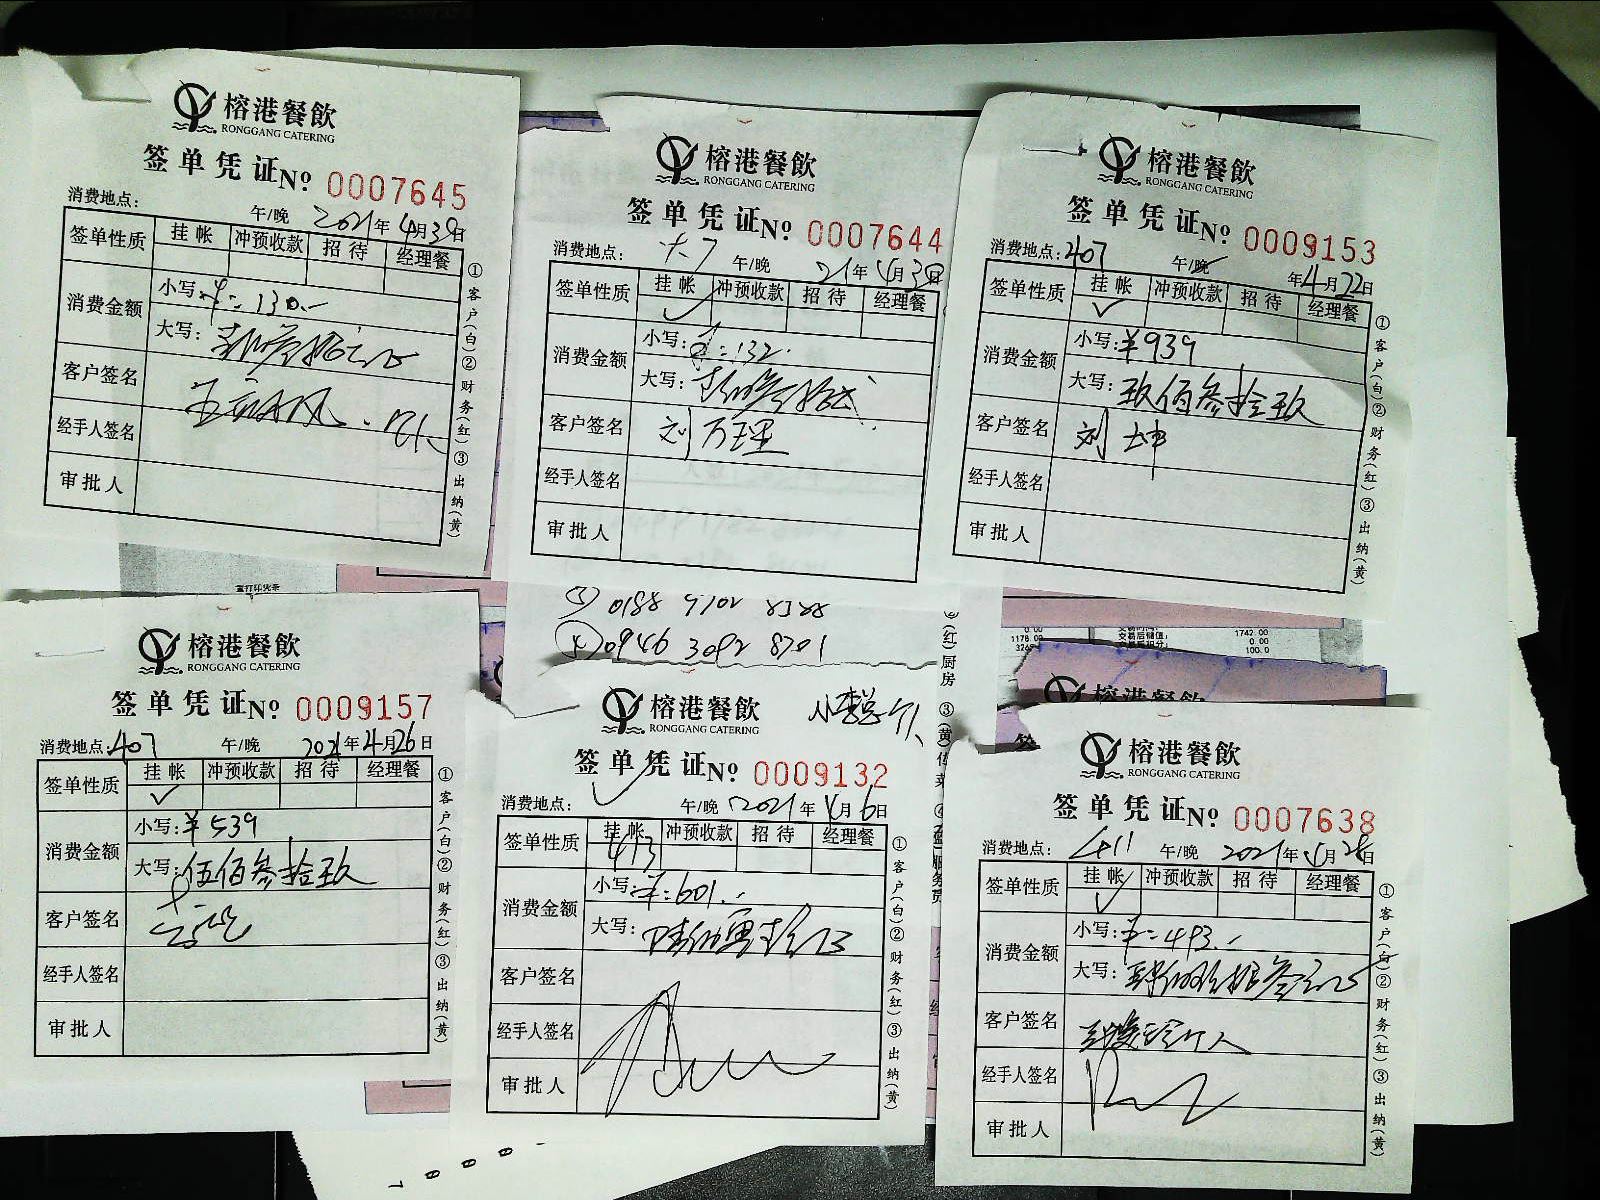 榕港餐飲
RONGGANG CATERING
签单凭证№ 0007645
消费地点: 午/晚 2021年4月30日
签单性质 挂帐 冲预收款 招待 经理餐
消费金额 小写:¥:130.-
大写:壹佰叁拾元正
客户签名
经手人签名
审批人
①客户(白)②财务(红)③出纳(黄)
榕港餐飲
RONGGANG CATERING
签单凭证№ 0007644
消费地点: 午/晚 21年4月30日
签单性质 挂帐 冲预收款 招待 经理餐
消费金额 小写:¥:132.
大写:壹佰叁拾贰
客户签名 刘万理
经手人签名
审批人
榕港餐飲
RONGGANG CATERING
签单凭证№ 0009153
消费地点:407 午/晚 年4月22日
签单性质 挂帐 冲预收款 招待 经理餐
消费金额 小写:¥939
大写:玖佰叁拾玖
客户签名 刘坤
经手人签名
审批人
①客户(白)②财务(红)③出纳(黄)
0946 3092 8701
(红)厨房③(黄)传菜
1178.00
1742.00
交易后储值: 0.00
交易后积分: 100.0
榕港餐飲
RONGGANG CATERING
签单凭证№ 0009157
消费地点:407 午/晚 2021年4月26日
签单性质 挂帐 冲预收款 招待 经理餐
消费金额 小写:¥539
大写:伍佰叁拾玖
客户签名
经手人签名
审批人
①客户(白)②财务(红)③出纳(黄)
榕港餐飲
RONGGANG CATERING
签单凭证№ 0009132
消费地点: 午/晚 2021年4月6日
签单性质 挂帐 冲预收款 招待 经理餐
413
消费金额 小写:¥:601.-
大写:陆佰零壹元正
客户签名
经手人签名
审批人
①客户(白)②财务(红)③出纳(黄)
榕港餐飲
榕港餐飲
RONGGANG CATERING
签单凭证№ 0007638
消费地点: 411 午/晚 2021年4月28日
签单性质 挂帐 冲预收款 招待 经理餐
消费金额 小写:¥:493.-
大写:肆佰玖拾叁元正
客户签名
经手人签名
审批人
①客户(白)②财务(红)③出纳(黄)